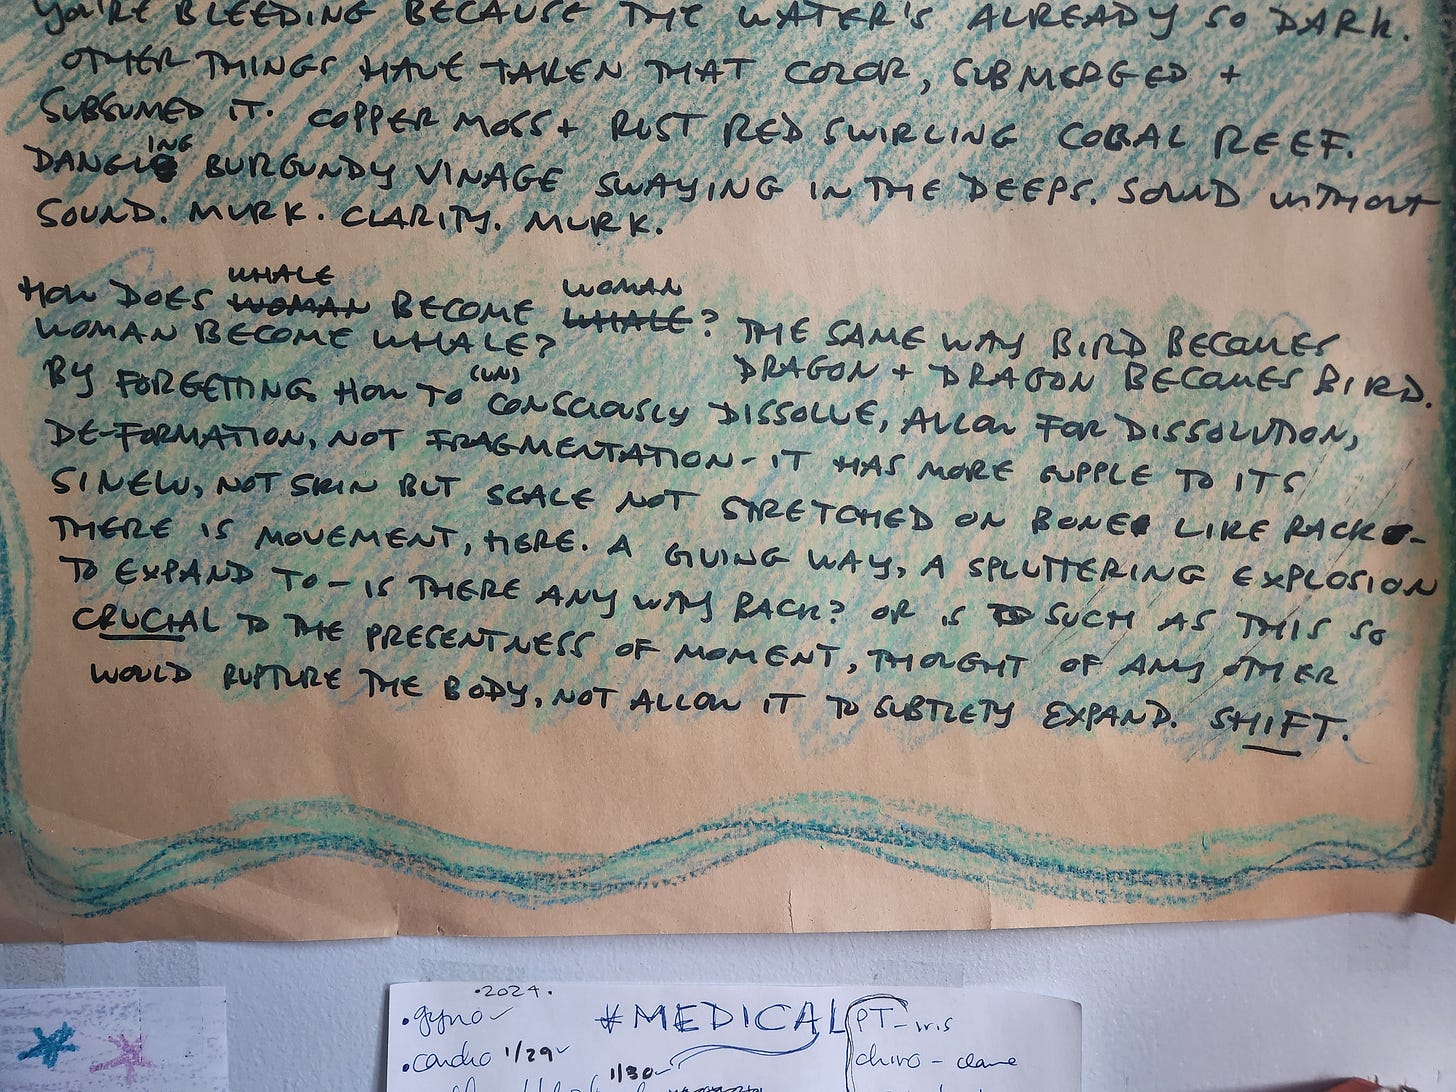 YOU'RE BLEEDING BECAUSE THE WATER'S ALREADY SO DARK.
OTHER THINGS HAVE TAKEN THAT COLOR, SUBMERGED +
SUBSUMED IT. COPPER MOSS + RUST RED SWIRLING CORAL REEF.
DANGLING BURGUNDY VINAGE SWAYING IN THE DEEPS. SOUND WITHOUT
SOUND. MURK. CLARITY. MURK.
WHALE WOMAN
HOW DOES WOMAN BECOME WHALE? THE SAME WAY BIRD BECOMES
WOMAN BECOME WHALE? DRAGON + DRAGON BECOMES BIRD.
BY FORGETTING HOW TO (UN)CONSCIOUSLY DISSOLVE, ALLOW FOR DISSOLUTION,
DE-FORMATION, NOT FRAGMENTATION - IT HAS MORE SUPPLE TO ITS
SINEW, NOT SKIN BUT SCALE NOT STRETCHED ON BONE LIKE RACK -
THERE IS MOVEMENT, HERE. A GIVING WAY, A SPLUTTERING EXPLOSION
TO EXPAND TO - IS THERE ANY WAY BACK? OR IS SUCH AS THIS SO
CRUCIAL TO THE PRESENTNESS OF MOMENT, THOUGHT OF ANY OTHER
WOULD RUPTURE THE BODY, NOT ALLOW IT TO SUBTLETY EXPAND. SHIFT.
·2024·
• gyno #MEDICAL PT - iris
• cardio 1/29 chiro -
1/30